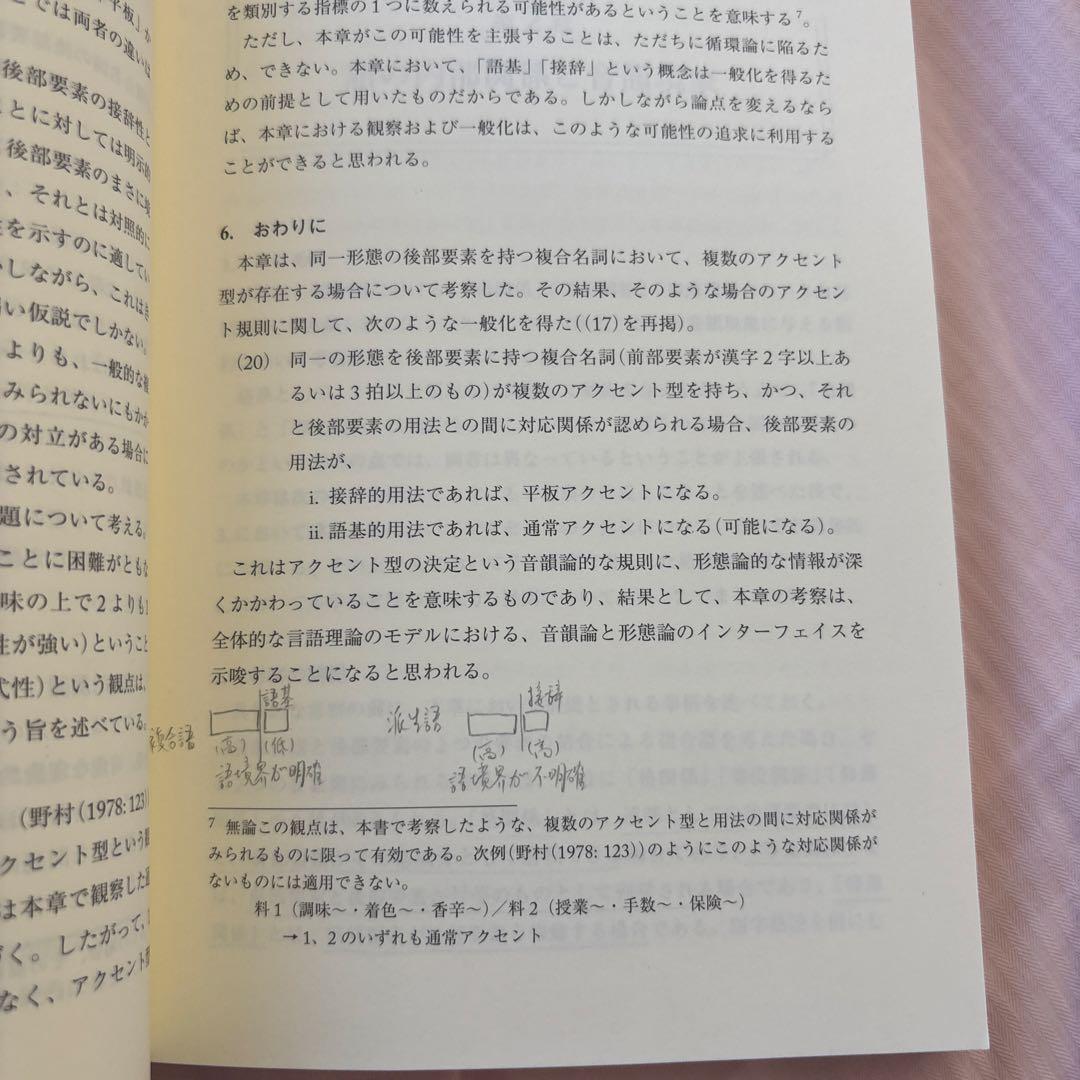 平板」か
では両者の違いは
後部要素の接辞性と
ことに対しては明示的
後部要素のまさに
、それとは対照的に
を示すのに適してい
しながら、これはき
い仮説でしかない。
よりも、一般的な
みられないにもかか
の対立がある場合に
されている。
題について考える。
ことに困難がともな
味の上で2よりも1
性が強い)ということ
代性)という観点は、
う旨を述べている。
(野村(1978:123)
クセント型という
は本章で観察した
く。したがって、
なく、アクセント
を類別する指標の1つに数えられる可能性があるということを意味する7。
ただし、本章がこの可能性を主張することは、ただちに循環論に陥るた
め、できない。本章において、「語基」「接辞」という概念は一般化を得るた
めの前提として用いたものだからである。しかしながら論点を変えるなら
ば、本章における観察および一般化は、このような可能性の追求に利用する
ことができると思われる。
6. おわりに
本章は、同一形態の後部要素を持つ複合名詞において、複数のアクセント
型が存在する場合について考察した。その結果、そのような場合のアクセン
ト規則に関して、次のような一般化を得た((17)を再掲)。
(20) 同一の形態を後部要素に持つ複合名詞(前部要素が漢字2字以上あ
るいは3拍以上のもの)が複数のアクセント型を持ち、かつ、それ
と後部要素の用法との間に対応関係が認められる場合、後部要素の
用法が、
i. 接辞的用法であれば、平板アクセントになる。
ii. 語基的用法であれば、通常アクセントになる(可能になる)。
これはアクセント型の決定という音韻論的な規則に、形態論的な情報が深
くかかわっていることを意味するものであり、結果として、本章の考察は、
全体的な言語理論のモデルにおける、音韻論と形態論のインターフェイスを
示唆することになると思われる。
語基
複合語
(高) (低)
語境界が明確
接辞
派生語
(高) (高)
語境界が不明確
7 無論この観点は、本書で考察したような、複数のアクセント型と用法の間に対応関係が
みられるものに限って有効である。次例(野村(1978: 123))のようにこのような対応関係が
ないものには適用できない。
料1(調味〜・着色〜・香辛〜)/料2(授業〜・手数〜・保険〜)
→1、2のいずれも通常アクセント